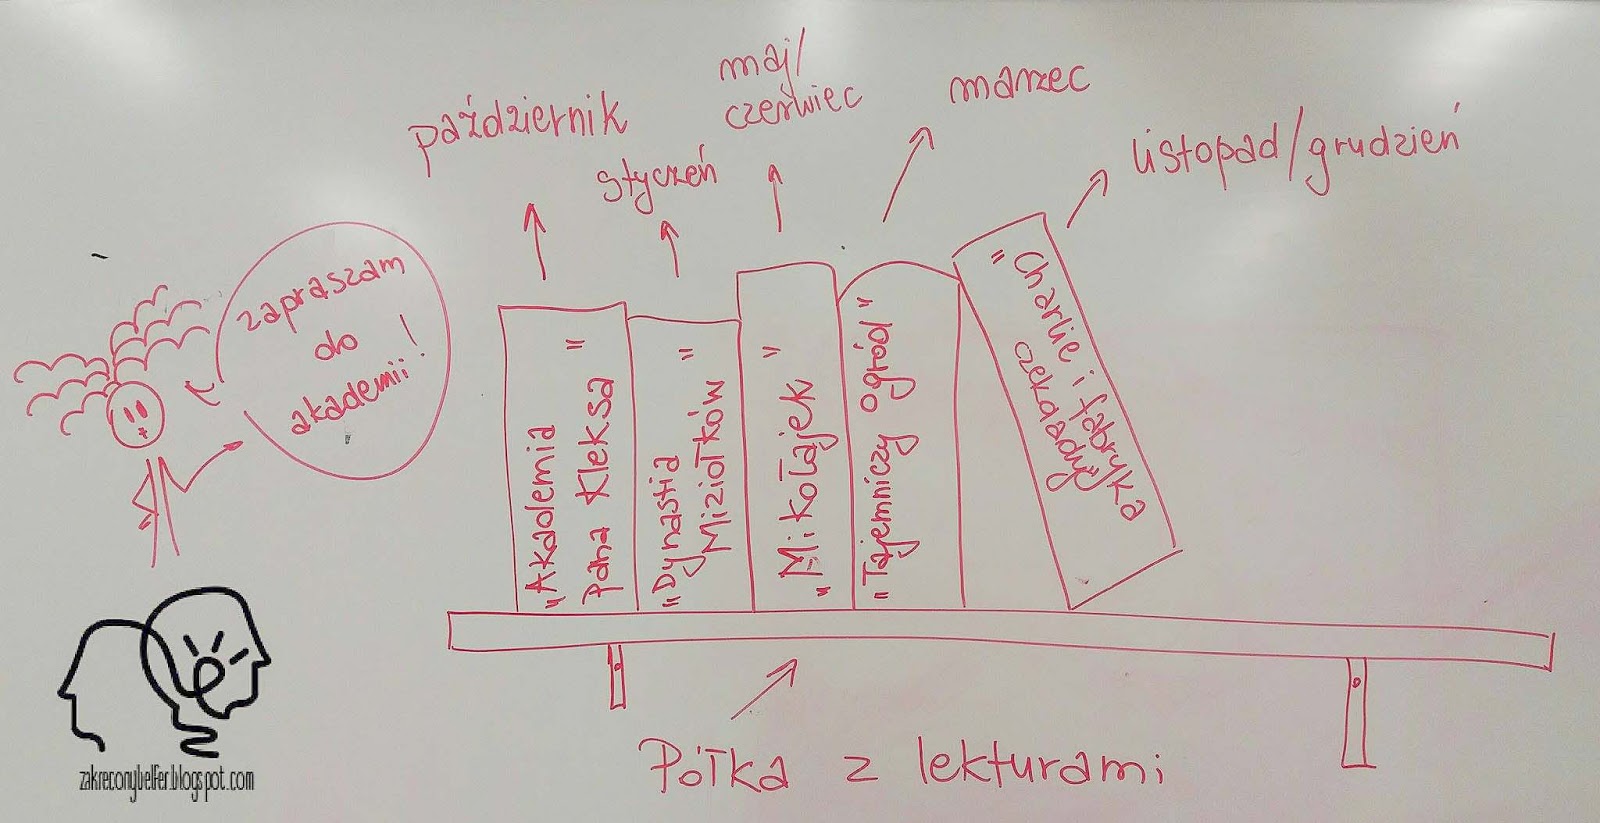 październik
styczeń
maj/
czerwiec
marzec
listopad/grudzień
zapraszam
do
akademii!
"Akademia
Pana Kleksa"
"Dynastia
Miziołków"
"Mikołajek"
"Tajemniczy ogród"
"Charlie i fabryka
czekolady"
Półka z lekturami
zakreconybelfer.blogspot.com